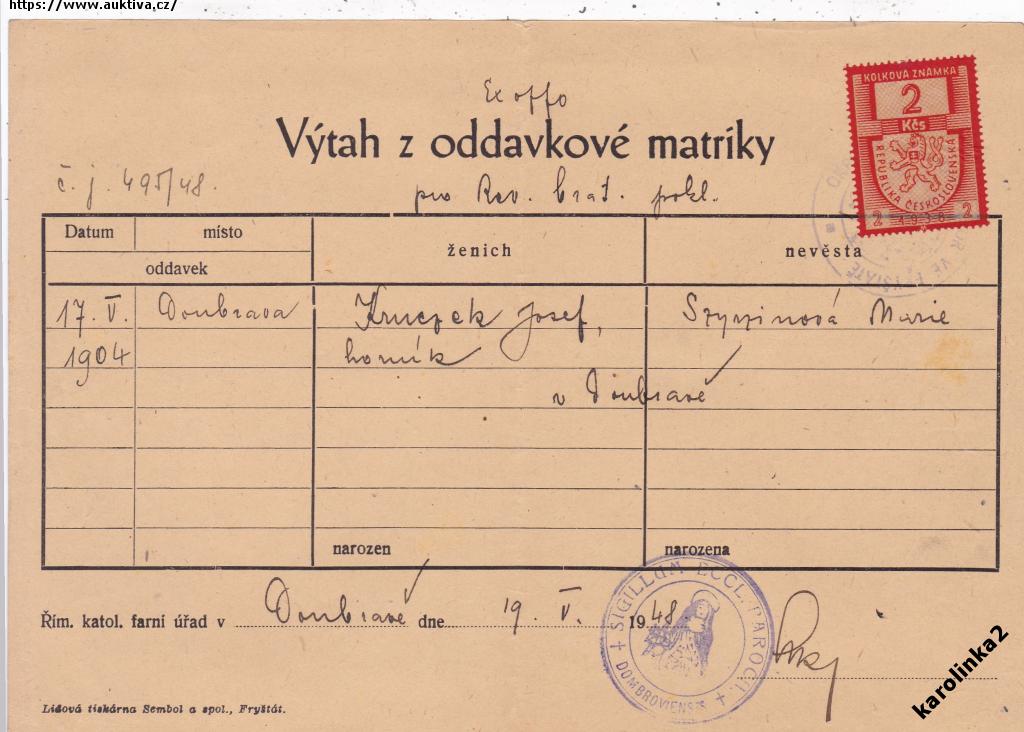 https://www.auktiva.cz/
KOLKOVÁ ZNÁMKA
2
Kčs
REPUBLIKA ČESKOSLOVENSKÁ
2 1938 2
Ex offo
Výtah z oddavkové matriky
č. j. 495/48. pro Rev. brat. pokl.
Datum místo ženich nevěsta
oddavek
17. V. Doubrava Kruczek Josef, Szyrzinová Marie
1904 horník
v Doubravě
narozen narozena
Řím. katol. farní úřad v Doubravě dne 19. V. 1948
SIGILLUM ECCL. PAROCH.
DOMBROVIENSIS
Lidová tiskárna Sembol a spol., Fryštát.
karolinka2